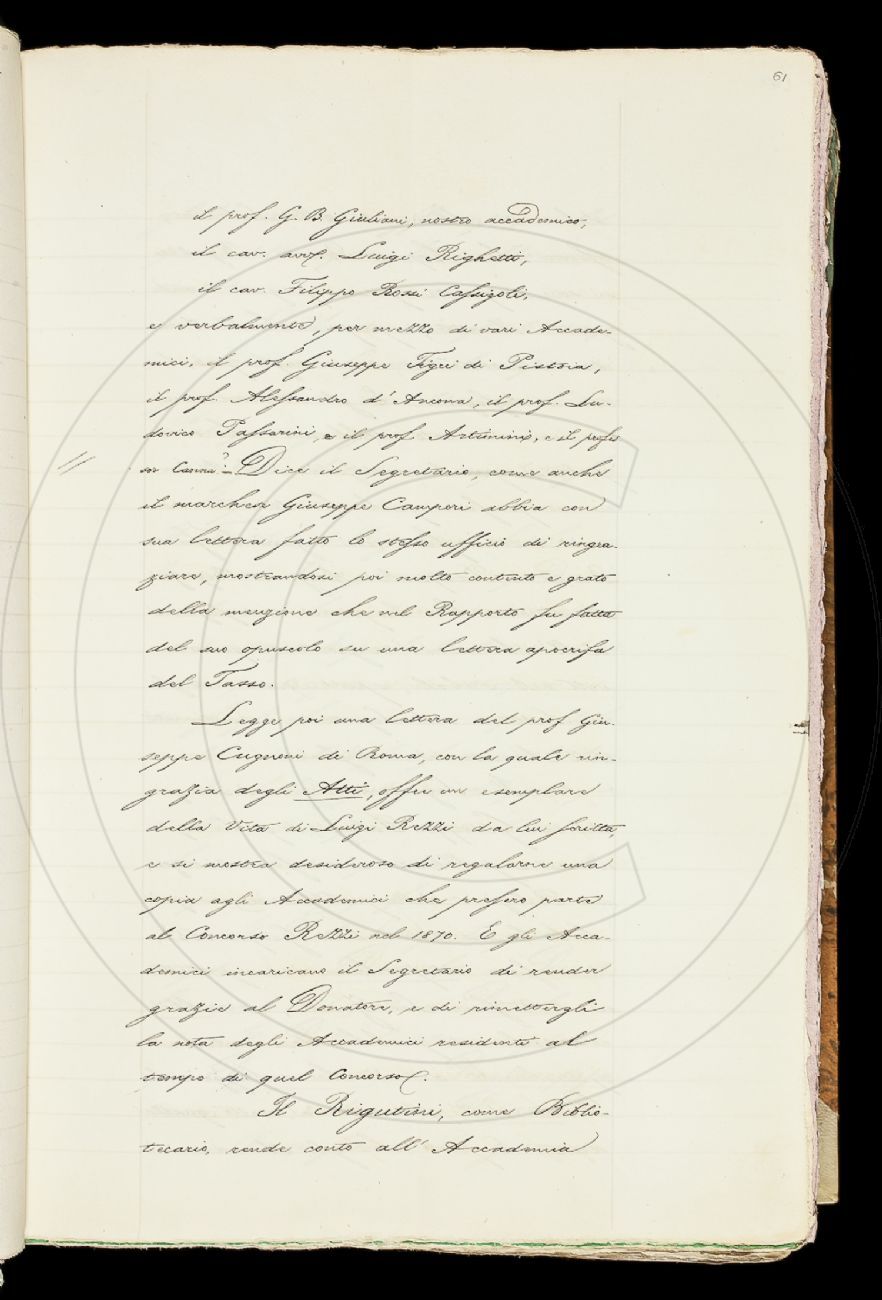 61
il prof. G. B. Giuliani, nostro accademico,
il cav. avv. Luigi Righetti,
il cav. Filippo Rossi Cassigoli,
e verbalmente, per mezzo di vari Accade-
mici, il prof. Giuseppe Tigri di Pistoia,
il prof. Alessandro d'Ancona, il prof. Lu-
dovico Passarini, e il prof. , e il profes
sor Canna. – Dice il Segretario, come anche
il marchese Giuseppe Campori abbia con
sua lettera fatto lo stesso ufficio di ringra-
ziare, mostrandosi poi molto contento e grato
della menzione che nel Rapporto fu fatta
del suo opuscolo su una lettera apocrifa
del Tasso.
Legge poi una lettera del prof. Giu-
seppe Cugnoni di Roma, con la quale rin-
grazia degli Atti, offre un esemplare
della Vita di Luigi Rezzi da lui scritta,
e si mostra desideroso di regalarne una
copia agli Accademici che presero parte
al Concorso Rezzi nel 1870. E gli Acca-
demici incaricano il Segretario di render
grazie al Donatore, e di rimettergli
la nota degli Accademici residenti al
tempo di quel Concorso.
Il Rigutini, come Biblio-
tecario, rende conto all'Accademia